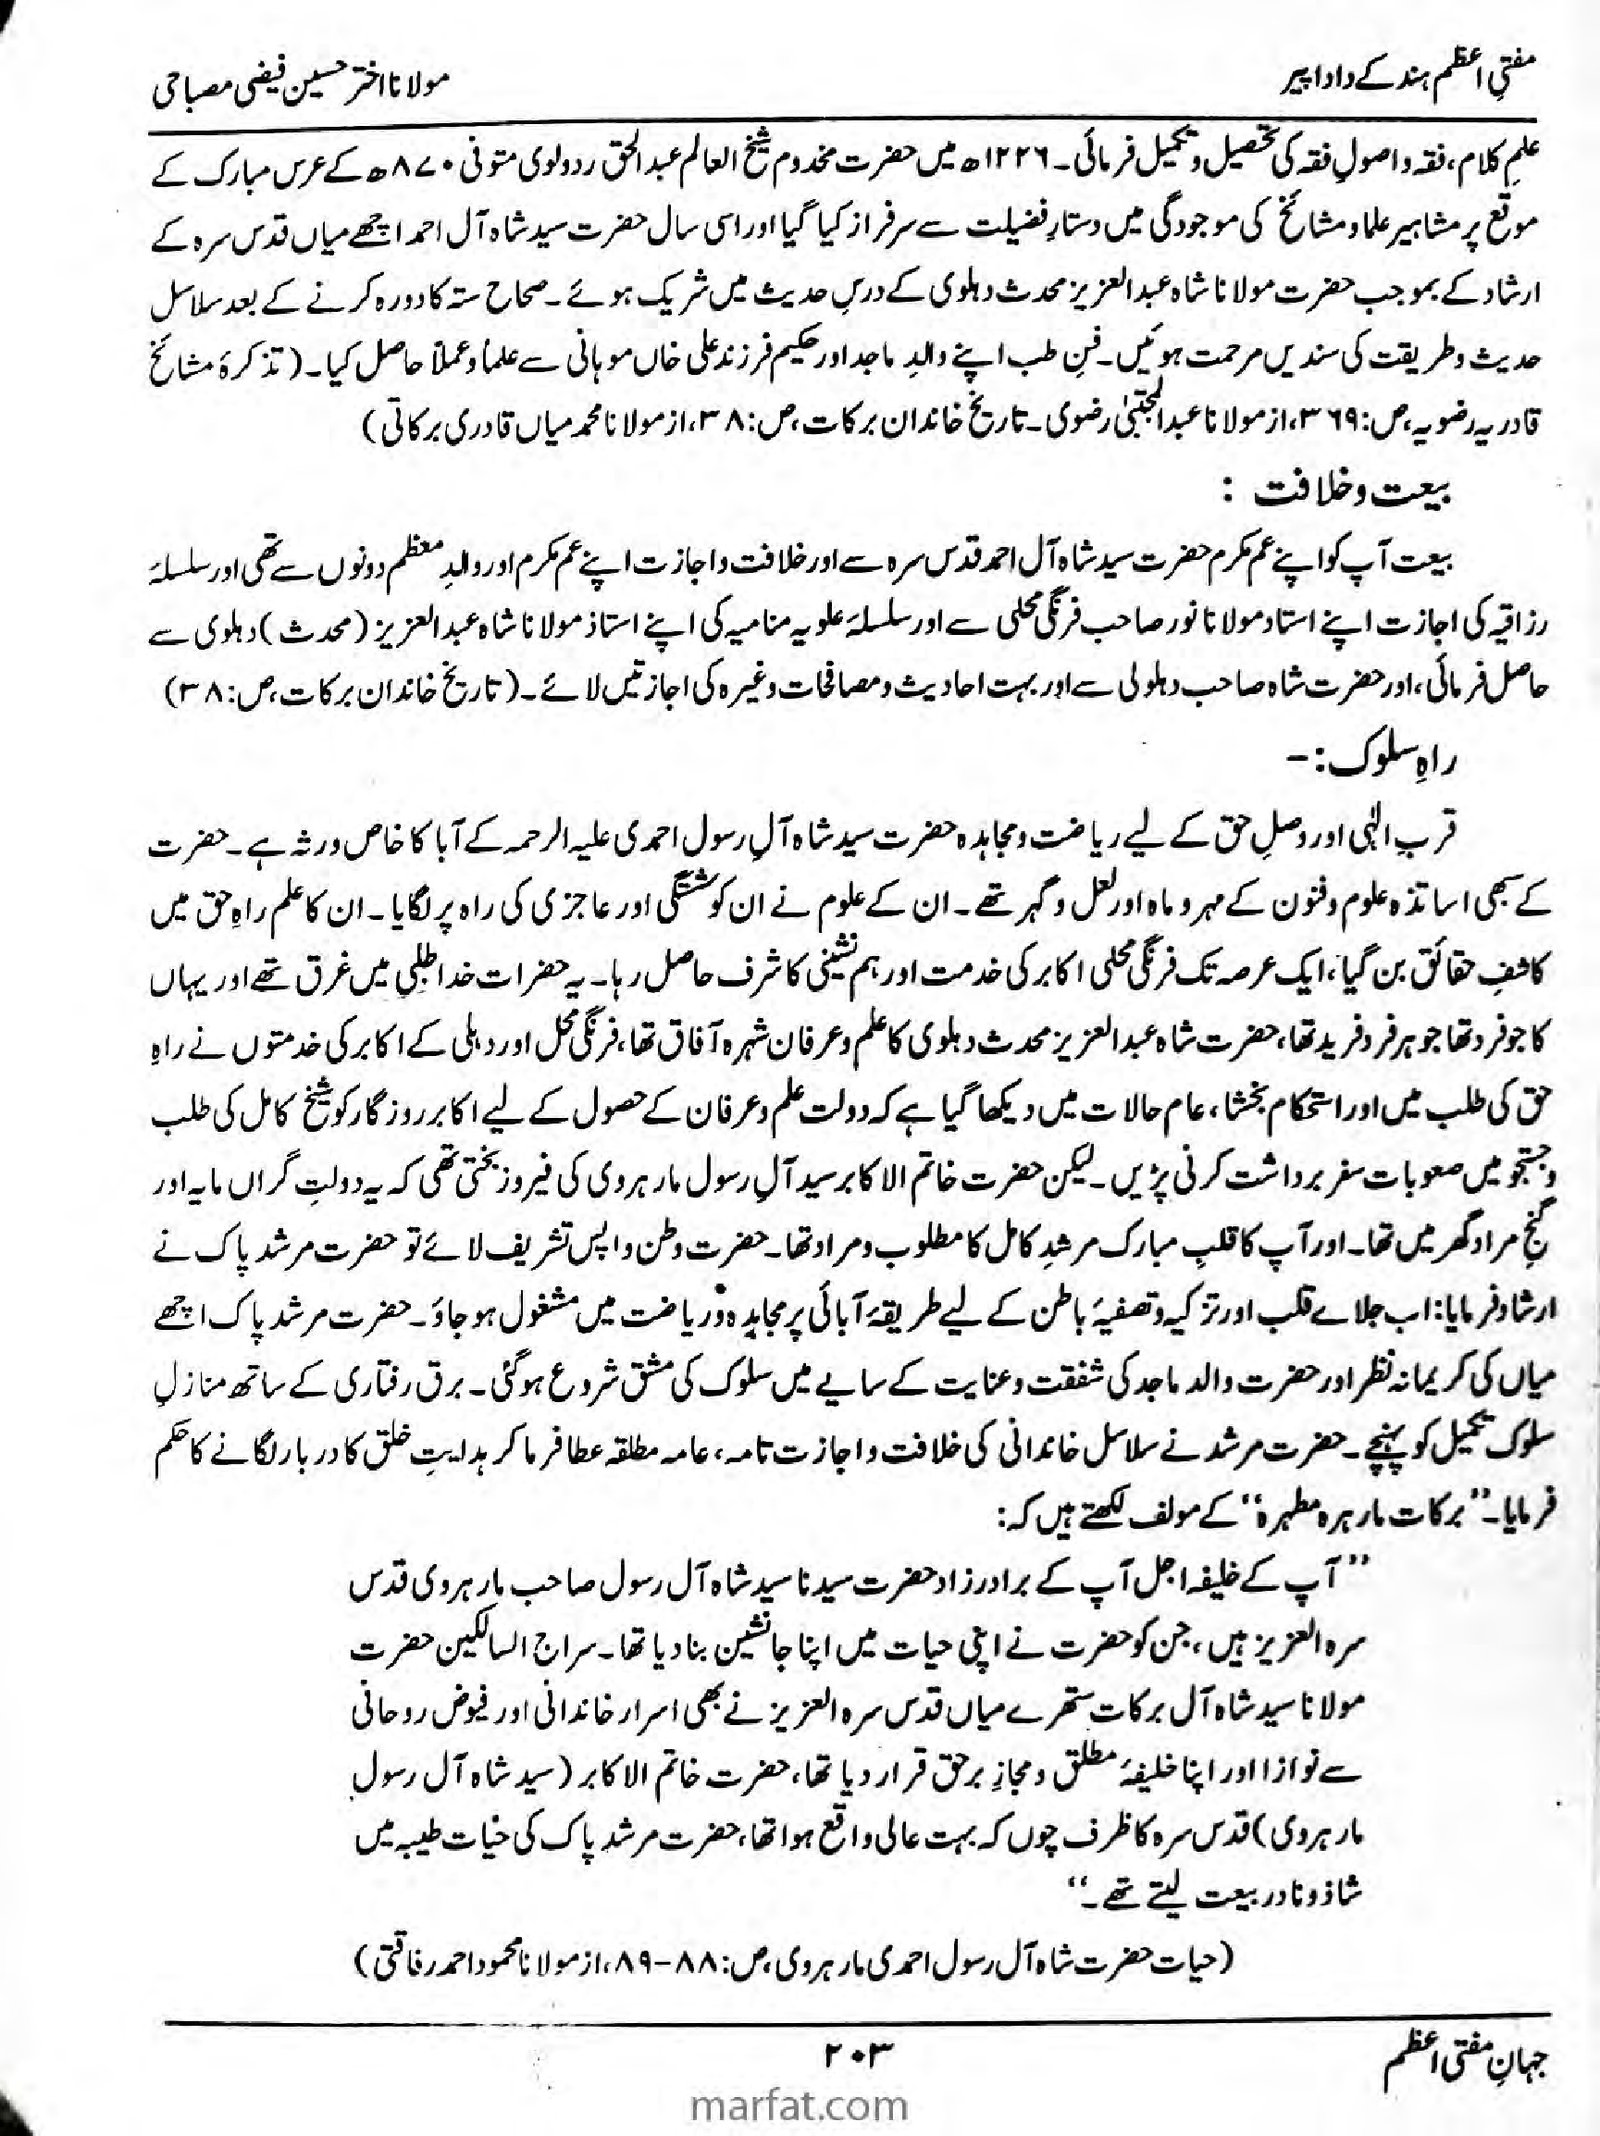 مفتیِ اعظم ہند کے دادا پیر
مولانا اختر حسین فیضی مصباحی
علمِ کلام، فقہ و اصولِ فقہ کی تحصیل و تکمیل فرمائی۔ ۱۲۲۶ھ میں حضرت مخدوم شیخ العالم عبدالحق ردولوی متوفی ۸۷۰ھ کے عرس مبارک کے
موقع پر مشاہیر علما و مشائخ کی موجودگی میں دستارِ فضیلت سے سرفراز کیا گیا اور اسی سال حضرت سید شاہ آل احمد اچھے میاں قدس سرہ کے
ارشاد کے بموجب حضرت مولانا شاہ عبدالعزیز محدث دہلوی کے درسِ حدیث میں شریک ہوئے۔ صحاح ستہ کا دورہ کرنے کے بعد سلاسل
حدیث و طریقت کی سندیں مرحمت ہوئیں۔ فنِ طب اپنے والدِ ماجد اور حکیم فرزند علی خاں موہانی سے علماً و عملاً حاصل کیا۔ (تذکرۂ مشائخ
قادریہ رضویہ، ص:۳۶۹، از مولانا عبدالمجتبیٰ رضوی۔ تاریخ خاندان برکات، ص:۳۸، از مولانا محمد میاں قادری برکاتی)
بیعت و خلافت :
بیعت آپ کو اپنے عم مکرم حضرت سید شاہ آل احمد قدس سرہ سے اور خلافت و اجازت اپنے عم مکرم اور والدِ معظم دونوں سے تھی اور سلسلۂ
رزاقیہ کی اجازت اپنے استاد مولانا نور صاحب فرنگی محلی سے اور سلسلۂ علویہ منامیہ کی اپنے استاذ مولانا شاہ عبدالعزیز (محدث) دہلوی سے
حاصل فرمائی، اور حضرت شاہ صاحب دہلولی سے اور بہت احادیث و مصافحات وغیرہ کی اجازتیں لائے۔ (تاریخ خاندان برکات، ص:۳۸)
راہِ سلوک:-
قربِ الٰہی اور وصلِ حق کے لیے ریاضت و مجاہدہ حضرت سید شاہ آلِ رسول احمدی علیہ الرحمہ کے آبا کا خاص ورثہ ہے۔ حضرت
کے سبھی اساتذہ علوم و فنون کے مہر و ماہ اور لعل و گہر تھے۔ ان کے علوم نے ان کو شستگی اور عاجزی کی راہ پر لگایا۔ ان کا علم راہِ حق میں
کاشفِ حقائق بن گیا، ایک عرصہ تک فرنگی محلی اکابر کی خدمت اور ہم نشینی کا شرف حاصل رہا۔ یہ حضرات خدا طلبی میں غرق تھے اور یہاں
کا جو فرد تھا جوہر فرد فرید تھا، حضرت شاہ عبدالعزیز محدث دہلوی کا علم و عرفان شہرہ آفاق تھا، فرنگی محل اور دہلی کے اکابر کی خدمتوں نے راہِ
حق کی طلب میں اور استحکام بخشا، عام حالات میں دیکھا گیا ہے کہ دولت علم و عرفان کے حصول کے لیے اکابر روزگار کو شیخ کامل کی طلب
و جستجو میں صعوبات سفر برداشت کرنی پڑیں۔ لیکن حضرت خاتم الاکابر سید آلِ رسول مارہروی کی فیروز بختی تھی کہ یہ دولتِ گراں مایہ اور
گنجِ مراد گھر میں تھا۔ اور آپ کا قلبِ مبارک مرشدِ کامل کا مطلوب و مراد تھا۔ حضرت وطن واپس تشریف لائے تو حضرت مرشد پاک نے
ارشاد فرمایا: اب جلاے قلب اور تزکیہ و تصفیۂ باطن کے لیے طریقۂ آبائی پر مجاہدہ و ریاضت میں مشغول ہو جاؤ۔ حضرت مرشد پاک اچھے
میاں کی کریمانہ نظر اور حضرت والد ماجد کی شفقت و عنایت کے سایے میں سلوک کی مشق شروع ہوگئی۔ برق رفتاری کے ساتھ منازلِ
سلوک تکمیل کو پہنچے۔ حضرت مرشد نے سلاسل خاندانی کی خلافت و اجازت تامہ، عامہ مطلقہ عطا فرما کر ہدایتِ خلق کا دربار لگانے کا حکم
فرمایا۔ ”برکات مارہرہ مطہرہ“ کے مولف لکھتے ہیں کہ:
”آپ کے خلیفہ اجل آپ کے برادر زاد حضرت سیدنا سید شاہ آل رسول صاحب مارہروی قدس
سرہ العزیز ہیں، جن کو حضرت نے اپنی حیات میں اپنا جانشین بنا دیا تھا۔ سراج السالکین حضرت
مولانا سید شاہ آل برکات ستھرے میاں قدس سرہ العزیز نے بھی اسرار خاندانی اور فیوض روحانی
سے نوازا اور اپنا خلیفۂ مطلق و مجازِ برحق قرار دیا تھا، حضرت خاتم الاکابر (سید شاہ آل رسول
مارہروی) قدس سرہ کا ظرف چوں کہ بہت عالی واقع ہوا تھا، حضرت مرشد پاک کی حیات طیبہ میں
شاذ و نادر بیعت لیتے تھے۔“
(حیات حضرت شاہ آل رسول احمدی مارہروی، ص:۸۸-۸۹، از مولانا محمود احمد رفاقتی)
جہانِ مفتی اعظم
۲۰۳
marfat.com